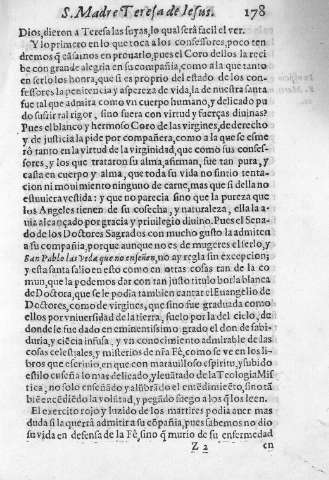 S. Madre Teresa de Iesus. 178
Dios, dieron a Teresa las suyas, lo qual serà facil el ver.
Y lo primero en lo que toca a los confessores, poco ten
dremos q̃ cãsarnos en prouarlo, pues el Coro dellos la reci
be con grande alegria en su compañia, como a la que tanto
en ser lo los honra, que si es proprio del estado de los con-
fessores la penitencia y aspereza de vida, la de nuestra santa
fue tal que admira como vn cuerpo humano, y delicado pu
do sufrir tal rigor, sino fuera con virtud y fuerças diuinas?
Pues el blanco y hermoso Coro de las virgines, de derecho
y de justicia la pide por compañera, como a la que se esme
rò tanto en la virtud de la virginidad, que como sus confes-
sores, y los que trataron su alma, afirman, fue tan pura, y
casta en cuerpo y alma, que toda su vida no sintio tenta-
cion ni mouimiento ninguno de carne, mas que si della no
estuuiera vestida: y que no parecia sino que la pureza que
los Angeles tienen de su cosecha, y naturaleza, ella la a-
uia alcançado por gracia y priuilegio diuino. Pues el Sena-
do de los Doctores Sagrados con mucho gusto la admiten
a su compañia, porque aunque no es de mugeres el serlo, y
San Pablo las veda que no enseñen, no ay regla sin excepcion;
y esta santa salio en esto como en otras cosas tan de la co
mun, que la podemos dar con tan justo titulo borla blanca
de Doctora, que se le podia tambien cantar el Euangelio de
Doctores, como de virgines, que sino fue graduada como
ellos por vniuersidad de la tierra, fuelo por la del cielo, de
donde le fue dado en eminentissimo grado el don de sabi-
duria, y ciẽcia infusa, y vn conocimiento admirable de las
cosas celestiales, y misterios de nr̃a Fè, como se ve en los li-
bros que escriuio, en que con marauilloso espiritu, y subido
estilo enseña lo mas delicado, y leuãtado de la Teologia Mis
tica, no solo enseñado y alũbrado el entẽdimiẽto, sino tã
biẽ encẽdiẽdo la volũtad, y pegãdo fuego a los q̃ los leen.
El exercito rojo y luzido de los martires podia auer mas
duda si la querrà admitir a su cõpañia, pues sabemos no dio
su vida en defensa de la Fè, sino q̃ murio de su enfermedad
Z 2 en